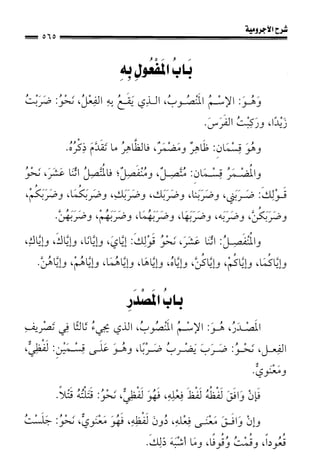 شرح الآجرومية
٥٦٥
بَابُ المَفْعُولِ بِهِ
وَهُوَ: الإِسْمُ المَنْصُوبُ، الذي يَقَعُ بِهِ الفِعْلُ، نَحْوُ: ضَرَبْتُ
زَيْدًا، وَرَكِبْتُ الفَرَسَ.
وهُوَ قِسْمَانِ: ظَاهِرٌ وَمُضْمَرٌ، فَالظَّاهِرُ مَا تَقَدَّمَ ذِكْرُهُ.
والمُضْمَرُ قِسْمَانِ: مُتَّصِلٌ، ومُنْفَصِلٌ؛ فالمُتَّصِلُ اثْنَا عَشَرَ، نَحْوُ
قَوْلِكَ: ضَرَبَنِي، وضَرَبَنَا، وضَرَبَكَ، وضَرَبَكِ، وضَرَبَكُمَا، وضَرَبَكُمْ،
وضَرَبَكُنَّ، وضَرَبَه، وضَرَبَهَا، وضَرَبَهُمَا، وضَرَبَهُمْ، وضَرَبَهُنَّ.
والمُنْفَصِلُ: اثْنَا عَشَرَ، نَحْوُ قَوْلِكَ: إِيَّايَ، وإِيَّانَا، وإِيَّاكَ، وإِيَّاكِ،
وإِيَّاكُمَا، وإِيَّاكُمْ، وإِيَّاكُنَّ، وإِيَّاهُ، وإِيَّاهَا، وإِيَّاهُمَا، وإِيَّاهُمْ، وإِيَّاهُنَّ.
بابُ المَصْدَرِ
المَصْدَرُ، هُوَ: الإِسْمُ المَنْصُوبُ، الذي يَجِيءُ ثَالِثًا فِي تَصْرِيفِ
الفِعلِ، نَحْوُ: ضَرَبَ يَضْرِبُ ضَرْبًا، وهُوَ عَلَى قِسْمَيْنِ: لَفْظِيٌّ،
ومَعْنَوِيٌّ.
فَإِنْ وَافَقَ لَفْظُهُ لَفْظَ فِعْلِهِ، فَهُوَ لَفْظِيٌّ، نَحْوُ: قَتَلْتُهُ قَتْلاً.
وإِنْ وَافَقَ مَعْنَى فِعْلِهِ، دُونَ لَفْظِهِ، فَهُوَ مَعْنَوِيٌّ، نَحْوُ: جَلَسْتُ
قُعُوداً، وقُمْتُ وُقُوفًا، ومَا أَشْبَهَ ذلِكَ.